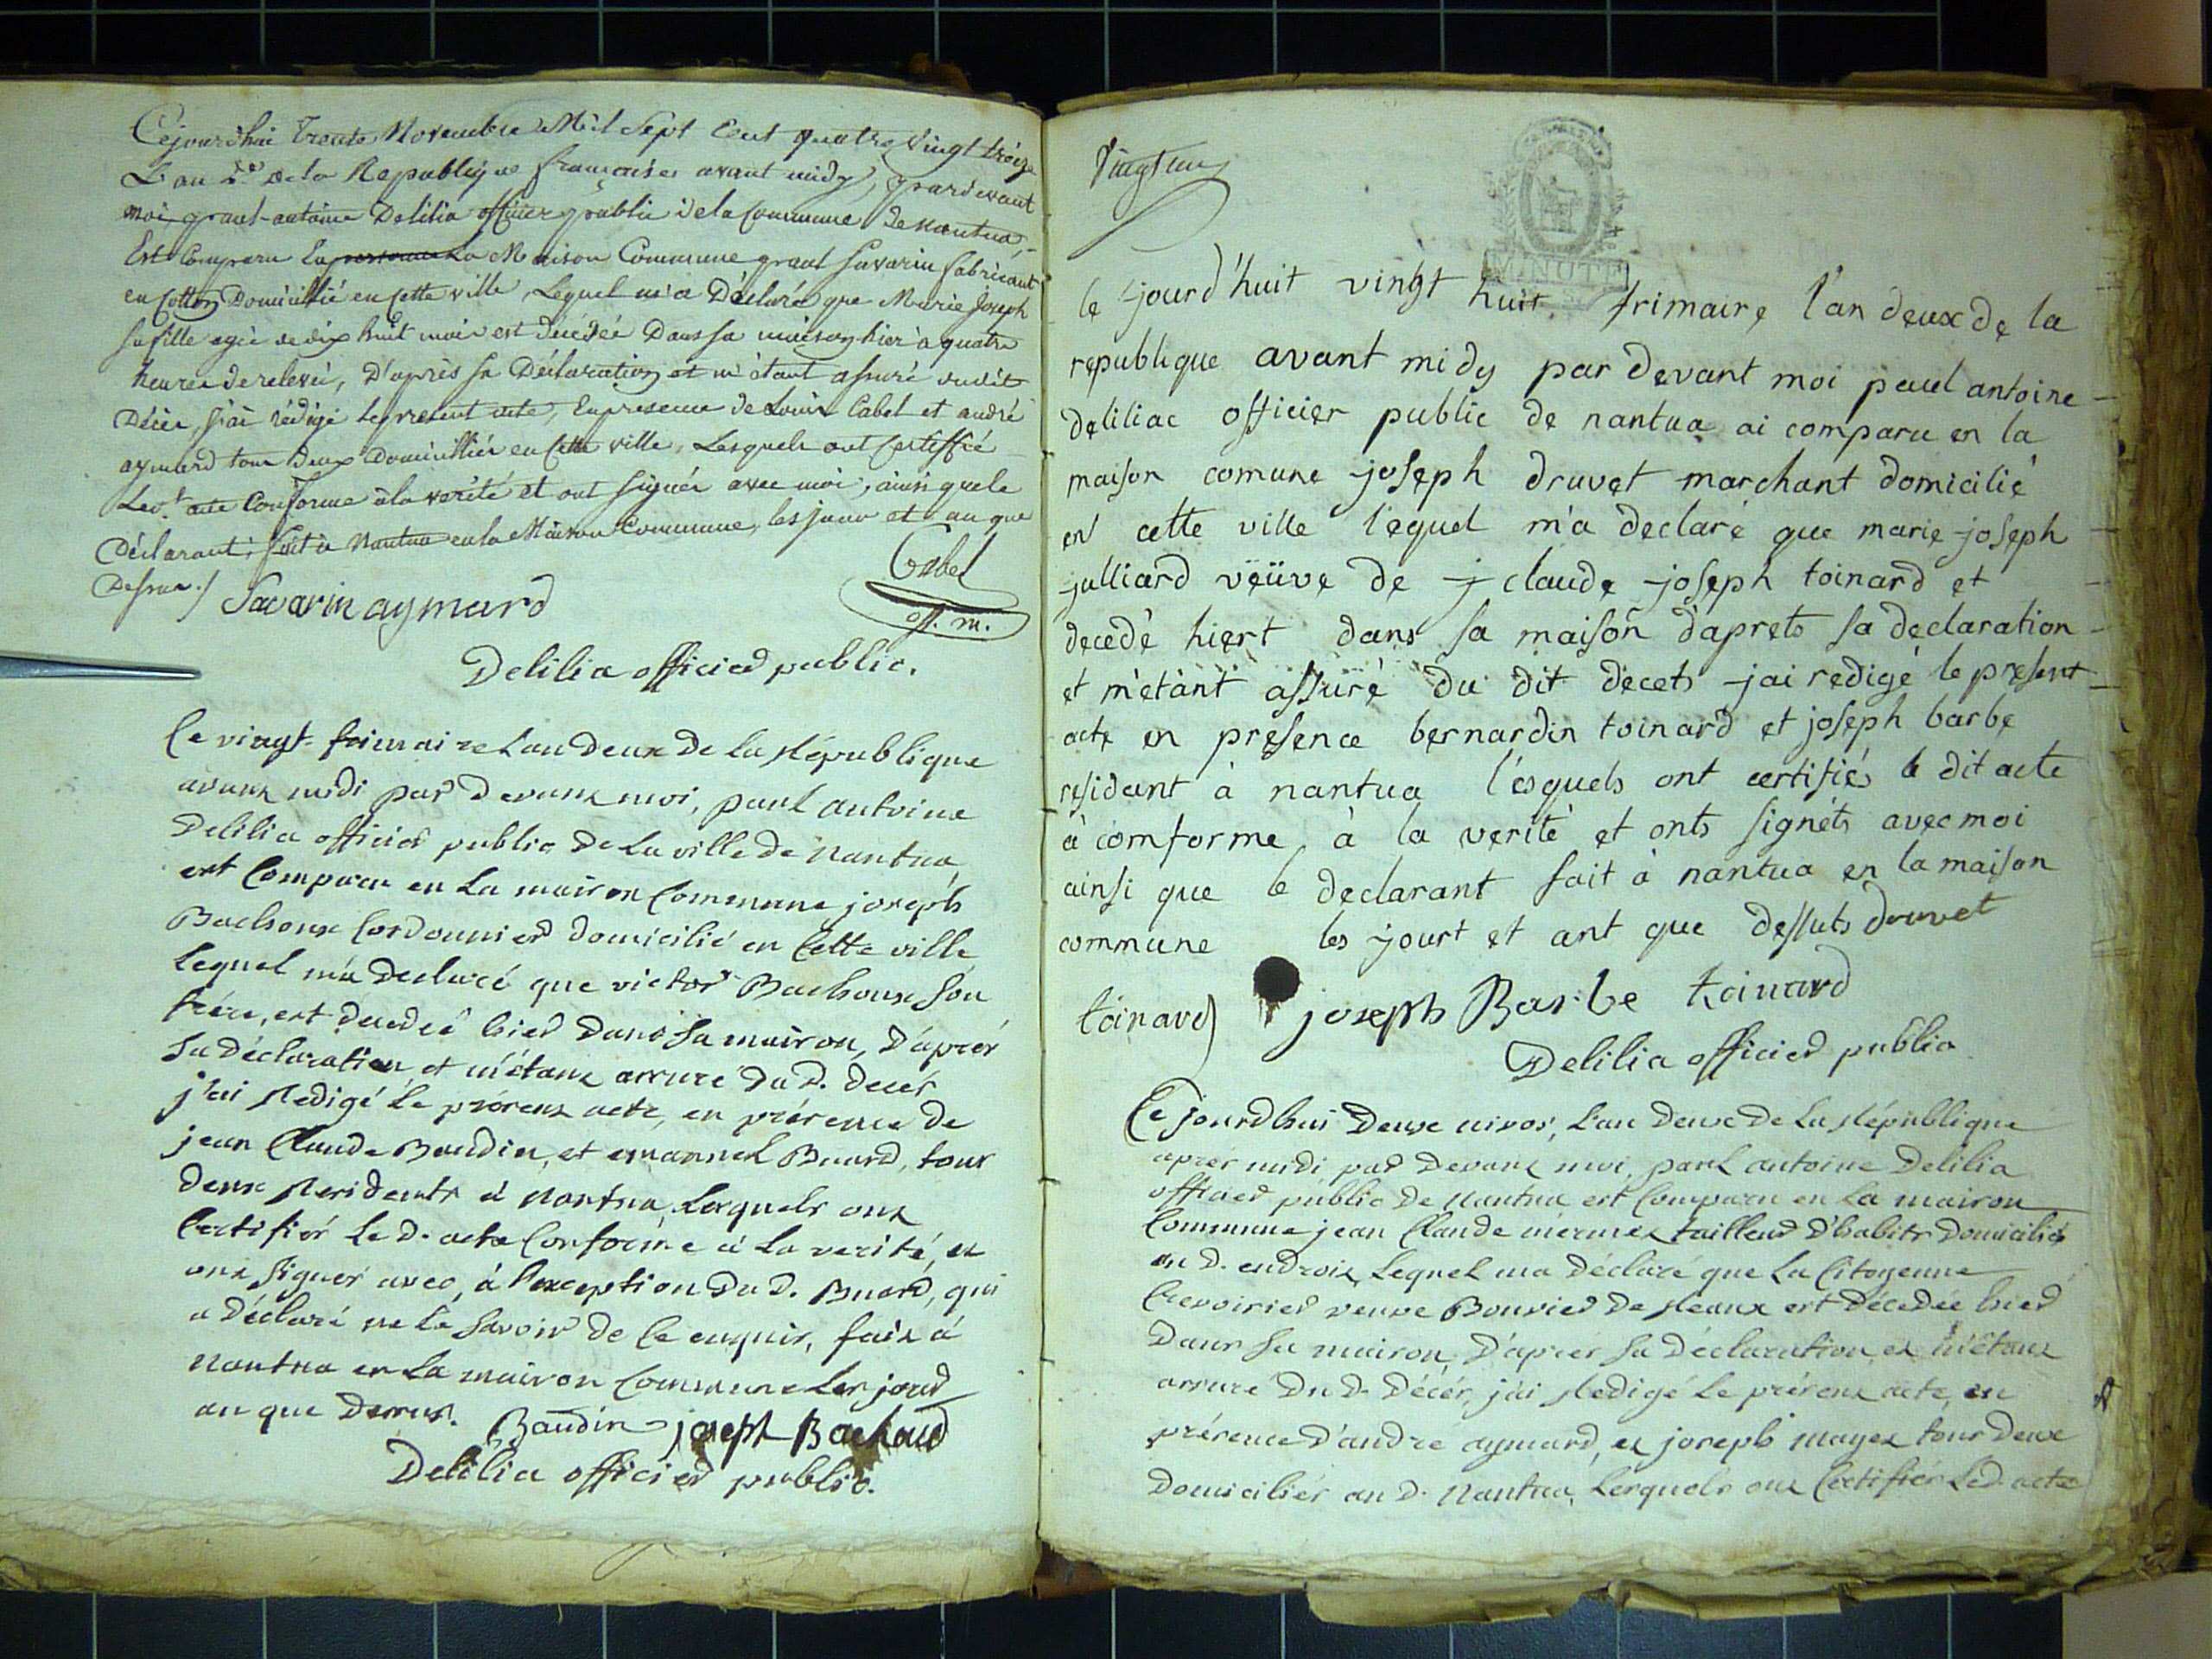 Cejourd'hui trente Novembre Mil Sept Cent quatre Vingt treize
L'an 2.e de la Republique françaises avant midy, pardevant
moi, paul-antoine Delilia officier public de la Commune de Nantua,
Est Comparu La personne La Maison Commune paul Savarin fabricant
en Cotton Domicillié en Cette ville, Lequel m'a Déclaré que Marie Joseph
sa fille agée de dix huit mois est decédée Dans sa maison hier à quatre
heures de relevée, D'après sa Déclaration et m'étant assuré dudit
Décès, j'ai rédigé le present acte, En presence de Louis Cabet et andré
aymard tous deux Domicilliés en Cette ville, Lesquels ont Certiffié
Led.t acte Conforme à la vérité et ont signés avec moi, ainsi que le
Déclarant, fait à Nantua en la Maison Commune, les jour et an que
Dessus./ Savarin aymard Cabet
off. m.
Delilia officier public.
Ce vingt frimaire L'an Deux De La République
avant midi par Devant moi, paul antoine
Delilia officier public De La ville De Nantua,
est Comparu en La maison Commune joseph
Bachoux Cordonnier domicilié en Cette ville
Lequel m'a Déclaré que victor Bachoux son
frére, est décedée hier Dans sa maison, D'après
sa déclaration, et m'étant assuré Du D. decès
j'ai Redigé Le présent acte, en présence de
jean Claude Baudin, et emannel Buard, tous
deux Residents à Nantua, Lesquels ont
Certifiés Le D. acte Conforme à La verité, et
ont signés avec, à l'exception Du D. Buard, qui
a Déclaré ne Le savoir de Ce enquis, fait à
Nantua en La maison Commune Les jour
an que Dessus. Baudin joseph Bachoud
Delilia officier public.
Vingt un
MINUTE
le jourd'huit vingt huit frimaire l'an deux de la
republique avant midy par devant moi paul antoine
deliliac officier public de nantua ai comparu en la
maison comune joseph druvet marchant domicilié
en cette ville l'equel m'a declaré que marie joseph
julliard veüve de j claude joseph toinard et
decedé hiert dans sa maison d'aprets sa declaration
et m'etant assuré du dit decets jai redigé le present
acte en presence bernardin toinard et joseph barbe
residant à nantua l'esquels ont certifiés le dit acte
à comforme à la verité et onts signéts avec moi
ainsi que le declarant fait à nantua en la maison
commune les jourt et ant que dessuts druvet
toinard joseph Barbe toinard
Delilia officier public
Ce jourdhui Deux nivos, L'an Deux De La République
aprés midi par Devant moi, paul antoine Delilia
officier public De Nantua est Comparu en La maison
Commune jean Claude mermet tailleur D'habits Domiciliés
au D. endroit, Lequel ma Déclaré que La Citoyenne
Crevoirier veuve Bouvier De Meaux est Décedée hier
Dans sa maison, D'après sa Déclaration, et m'étant
assuré Du D. Décés, j'ai Redigé Le présent acte, en
présence D'andre aymard, et joseph mayet tous Deux
Domiciliés au D. Nantua, Lesquels ont Certifiés Le D. acte